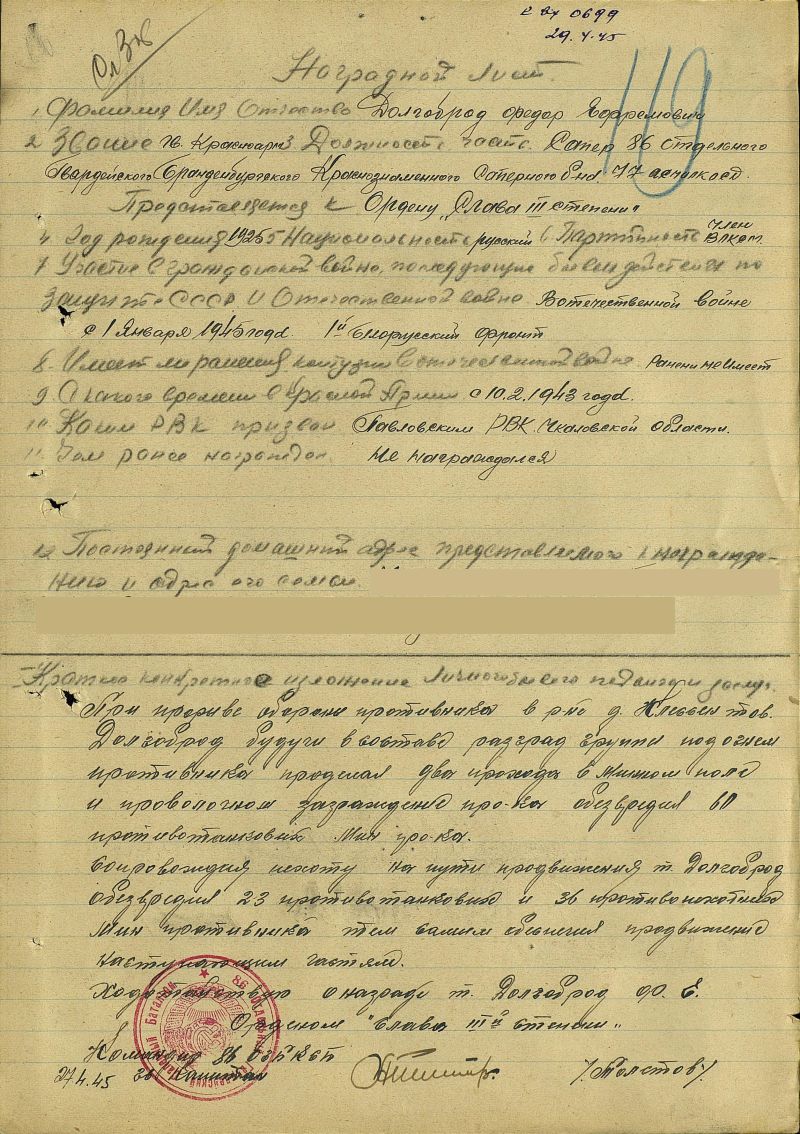 Вх 0699
29.4.45
119
Наградной Лист.
1. Фамилия Имя Отчество Долгоброд Федор Ефремович
2 Звание гв. Красноарм 3 Должность часть. Сапер 86 Отдельного
Гвардейского Бранденбургского Краснознаменного Саперного б-на 77
Представляется к Ордену „Слава III степени"
4. Год рождения 1925 5 Национальность русский 6 Партийность Член ВЛКСМ.
7 Участие в гражданской войне, последующие боевые действиях по
защите СССР и Отечественной войне В отечественной войне
с 1 Января 1945 года. 1й Белорусский фронт
8. Имеет ли ранения контузии в отечественной войне Ранени не имеет
9 С какого времени в Красной Армии с 10.2.1943 года.
10 Каким РВК призван Павловским РВК Чкаловской области.
11 Чем ранее награжден. Не награждался
12 Постоянный домашний адрес представляемого к награжде-
нию и адрес его семьи.
Краткое конкретное изложение личного боевого подвига или заслуг.
При прорыве обороны противника в р-не д.
Долгоброд будучи в составе разград группы под огнем
противника проделал два прохода в минном поле
и проволочном заграждение пр-ка обезвредил 60
противотанковых мин пр-ка.
Сопровождая пехоту на пути продвижения т. Долгоброд
обезвредил 23 противотанковых и 36 противопехотных
мин противника тем самым обеспечил продвижение
наступающим частям.
Ходатайствую о награде т. Долгоброд Ф. Е.
Орденом "Слава IIIй степени„
Командир 86
27.4.45 гв Капитан /Толстов/